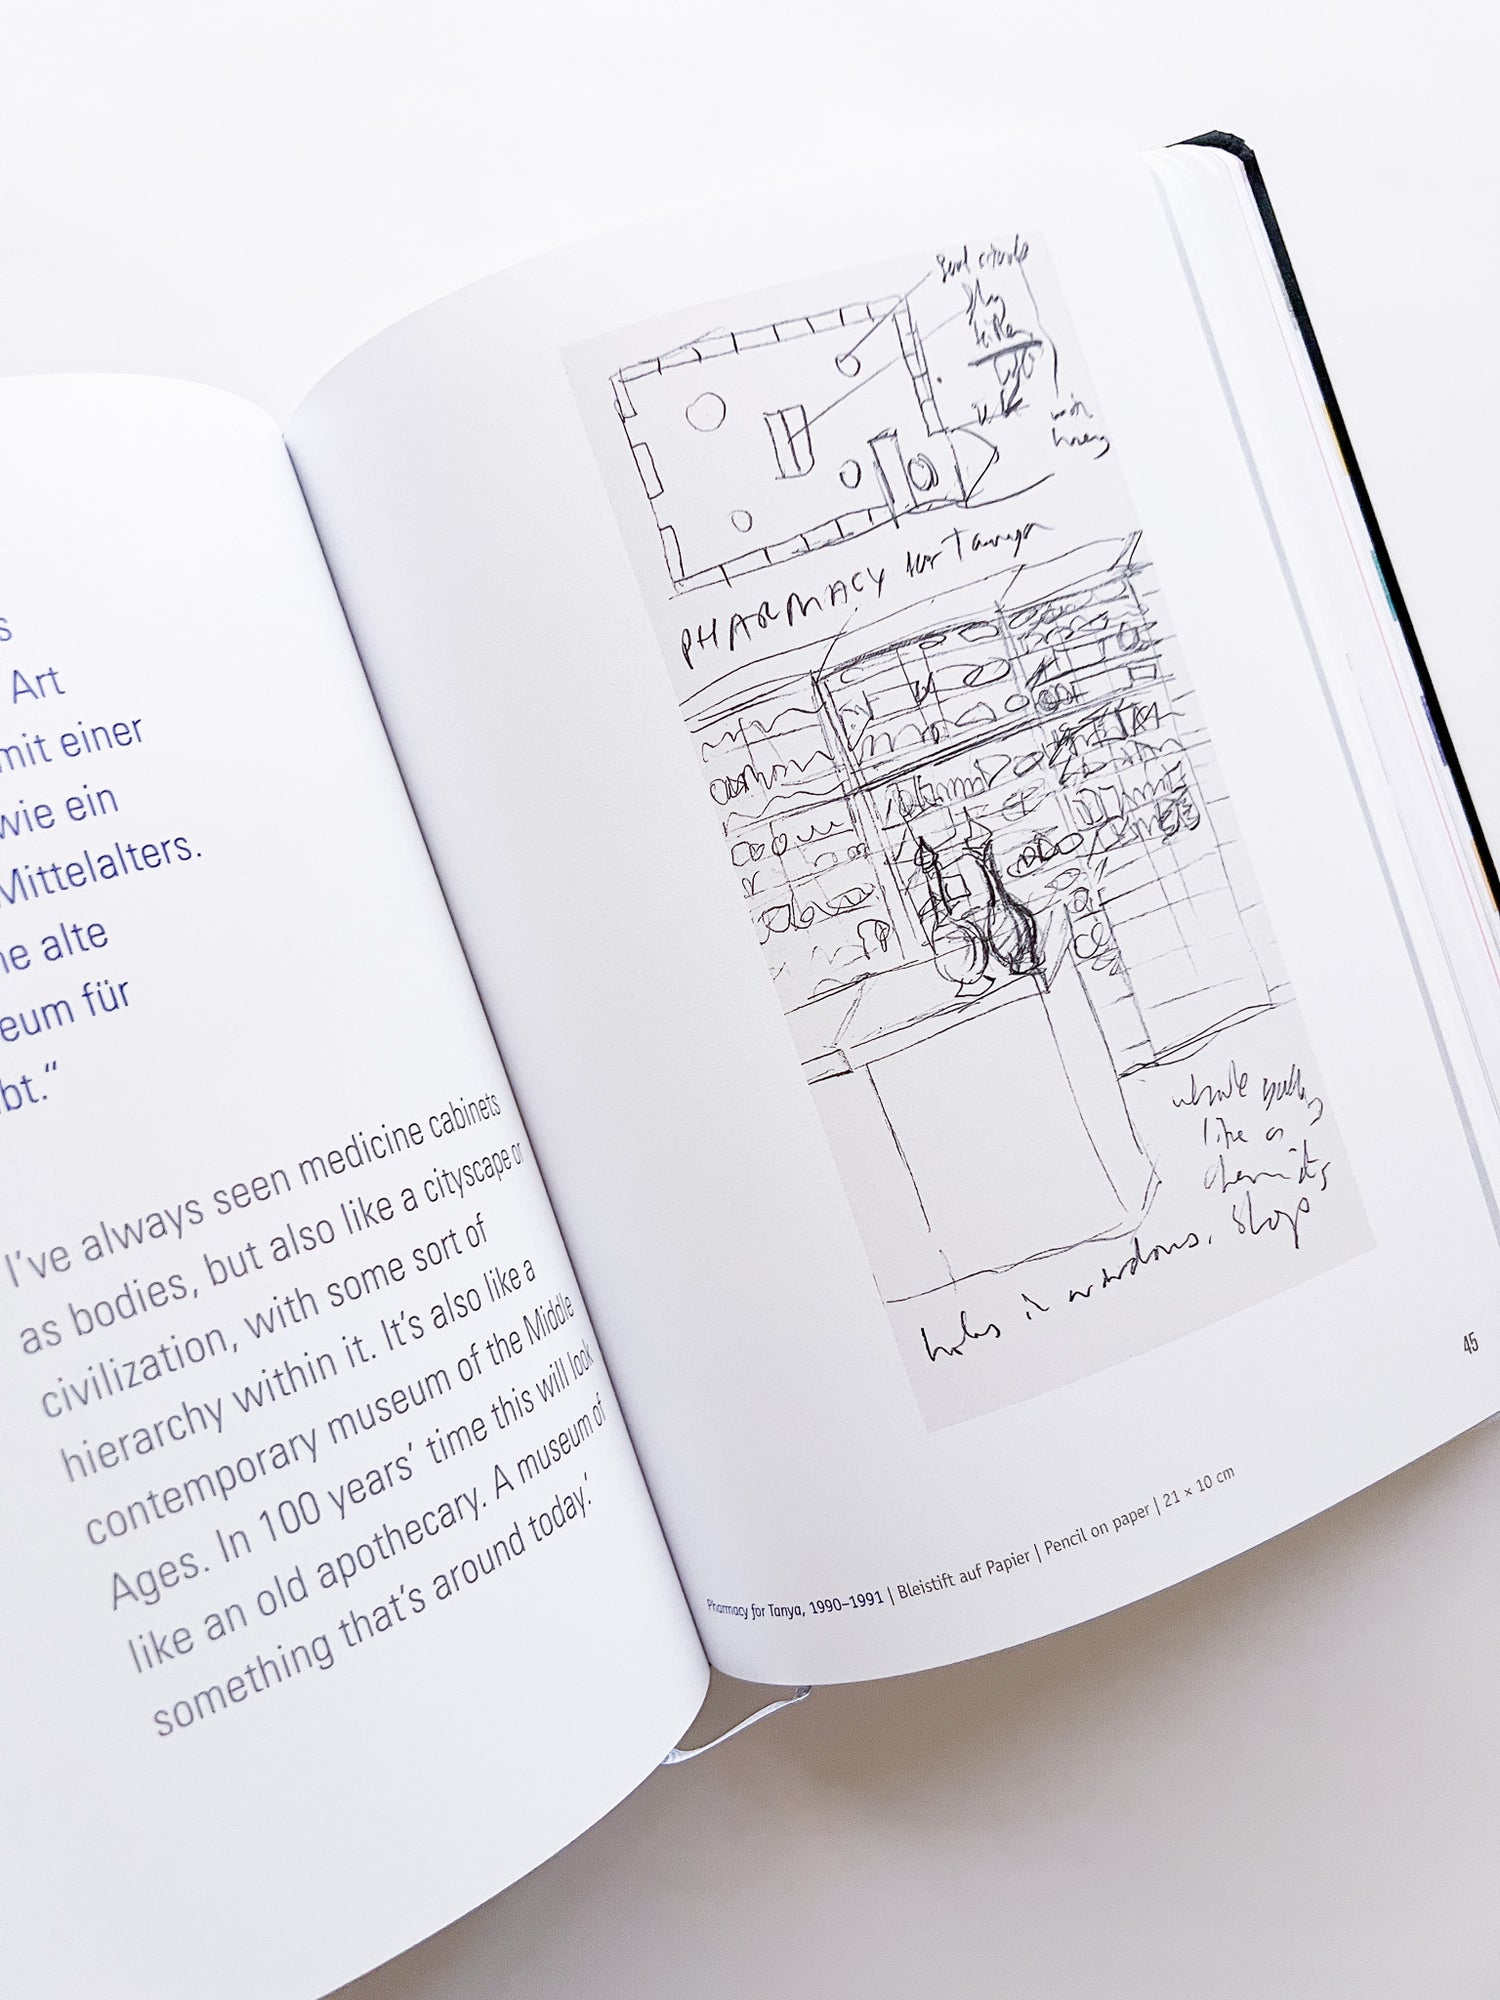 s
Art
mit einer
wie ein
Mittelalters.
ne alte
eum für
bt.“
I’ve always seen medicine cabinets
as bodies, but also like a cityscape or
civilization, with some sort of
hierarchy within it. It’s also like a
contemporary museum of the Middle
Ages. In 100 years’ time this will look
like an old apothecary. A museum of
something that’s around today.’
PHARMACY for Tanya
whole
like a
chemists
shop
holes in windows.
45
Pharmacy for Tanya, 1990–1991 | Bleistift auf Papier | Pencil on paper | 21 × 10 cm